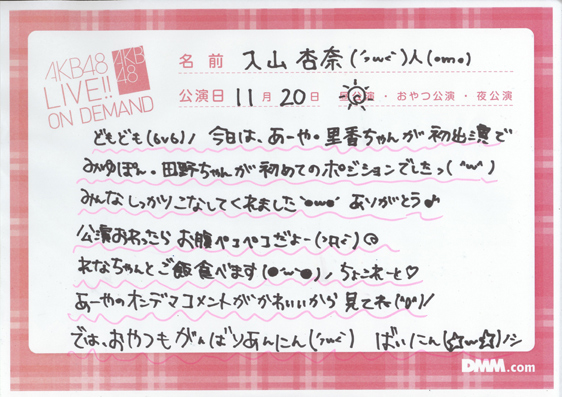 AKB48
LIVE!!
ON DEMAND
AKB
48
名前 入山杏奈(´ω`)人(•m•)
公演日 11月20日 公演・おやつ公演・夜公演
どもども(6v6)ノ 今日は、あーや・里香ちゃんが初出演で
みゆぽん・田野ちゃんが初めてのポジションでしたっ( ^w^ )
みんなしっかりこなしてくれました ありがとう♪
公演おわったらお腹ペコペコだよー
れなちゃんとご飯食べます ノ ちょこれーと♡
あーやのオンデマコメントがかわいいから見てね(^o^)/
では、おやつもがんばりあんにん(´ω`) ばいにん(☆w☆)ノシ
DMM.com